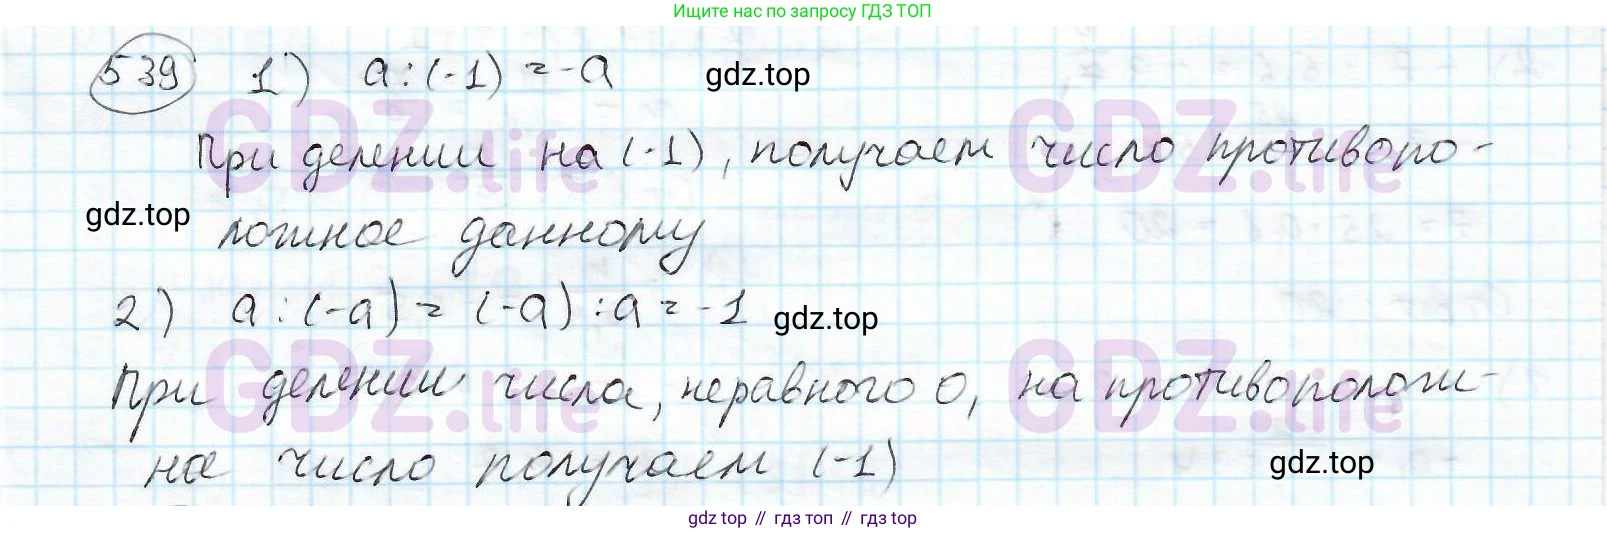 Ищите нас по запросу ГДЗ ТОП
539 1) a : (-1) = -a gdz.top
При делении на (-1), получаем число противопо-
gdz.top ложное данному
2) a : (-a) = (-a) : a = -1 gdz.top
При делении числа, неравного 0, на противополож-
ное число получаем (-1)
gdz.top
GDZ.life GDZ.life
GDZ.life GDZ.life
gdz top // гдз топ // gdz top